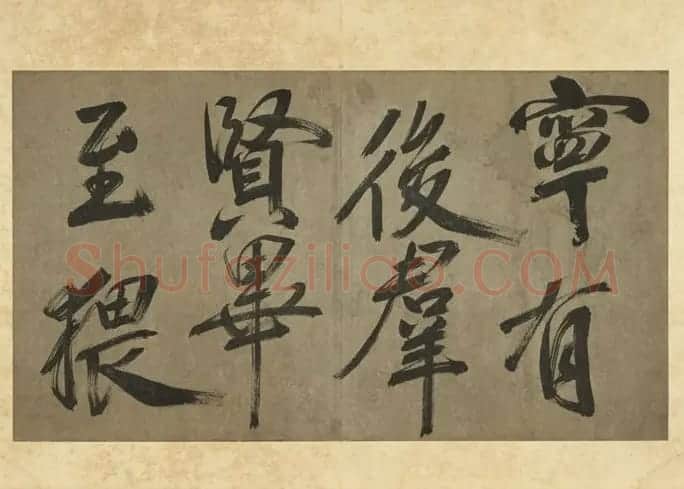 寧有
後羣
賢畢
至猥
Shufaziliao.COM